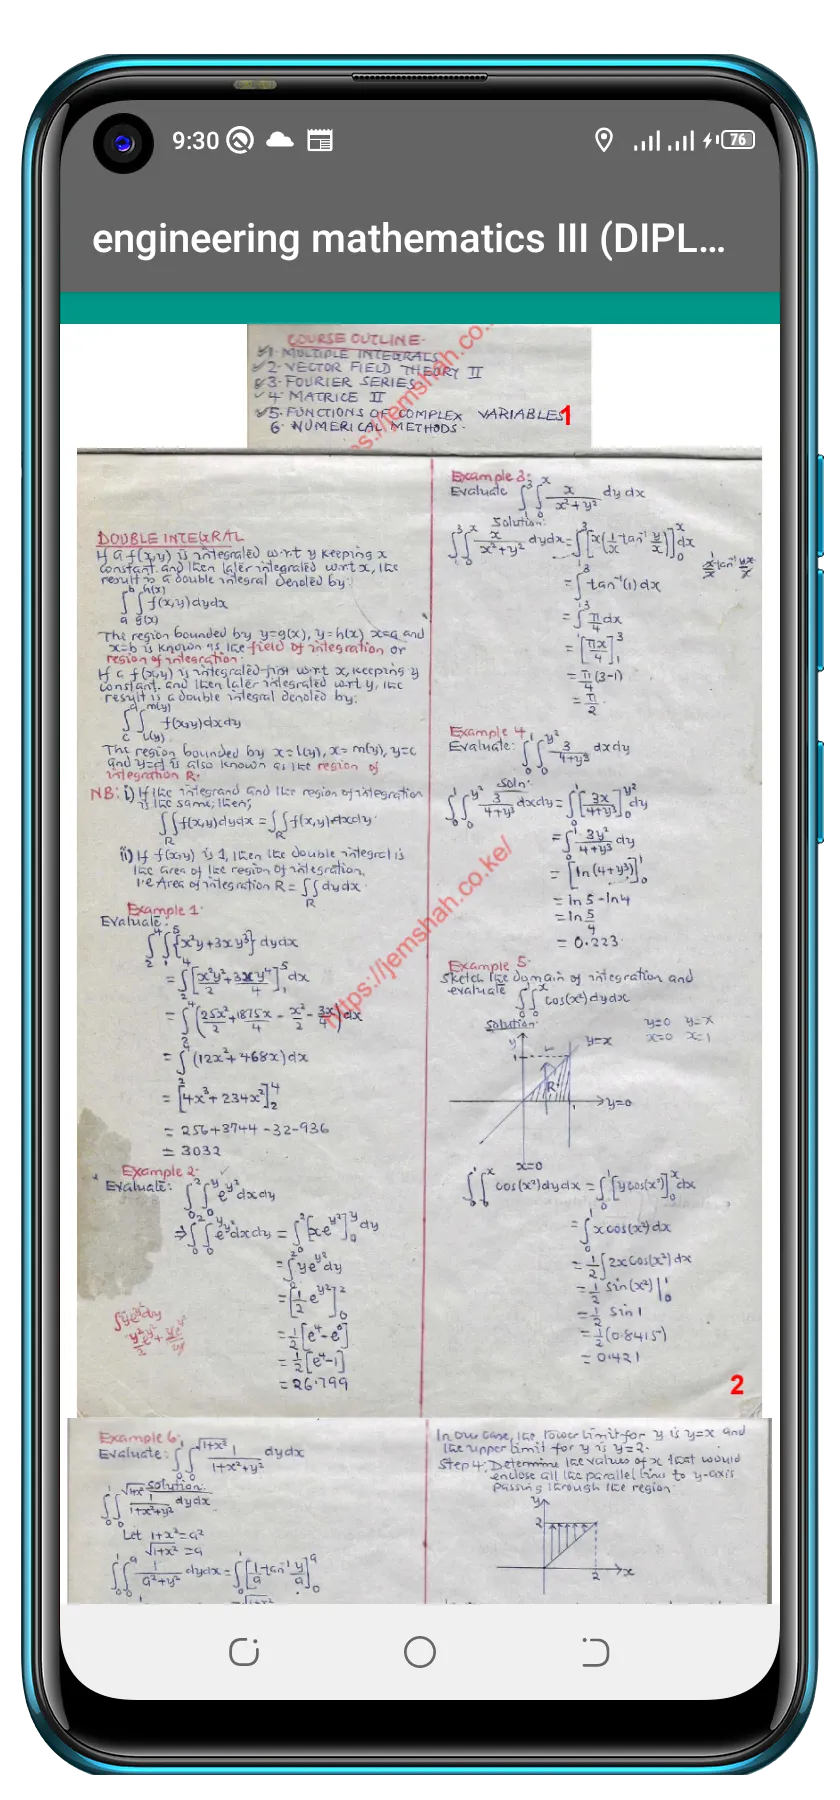 9:30
76
engineering mathematics III (DIPL...
COURSE OUTLINE.
1. MULTIPLE INTEGRALS
2. VECTOR FIELD THEORY II
3. FOURIER SERIES
4. MATRICE II
5. FUNCTIONS OF COMPLEX VARIABLES
6. NUMERICAL METHODS.
1
DOUBLE INTEGRAL
If a f(x,y) is integrated w.r.t y keeping x
constant and then later integrated w.r.t x, the
result is a double integral denoted by:
∫_a^b ∫_{g(x)}^{h(x)} f(x,y)dydx
The region bounded by y=g(x), y=h(x) x=a and
x=b is known as the field of integration or
region of integration.
If a f(x,y) is integrated first w.r.t x, keeping y
constant and then later integrated w.r.t y, the
result is a double integral denoted by:
∫_c^d ∫_{l(y)}^{m(y)} f(x,y)dxdy
The region bounded by x=l(y), x=m(y), y=c
and y=d is also known as the region of
integration R.
NB: i) If the integrand and the region of integration
is the same, then;
∫∫_R f(x,y)dydx = ∫∫_R f(x,y)dxdy.
ii) If f(x,y) is 1, then the double integral is
the area of the region of integration.
i.e Area of integration R = ∫∫_R dydx.
Example 1.
Evaluate:
∫_2^4 ∫_1^5 {x²y+3xy³}dydx
= ∫_2^4 [x²y²/2 + 3xy⁴/4]_1^5 dx
= ∫_2^4 (25x²/2 + 1875x/4 - x²/2 - 3x/4)dx
= ∫_2^4 (12x²+468x)dx
= [4x³+234x²]_2^4
= 256+3744-32-936
= 3032
Example 2.
Evaluate: ∫_0^2 ∫_0^y e^{y²}dxdy
⇒ ∫_0^2 ∫_0^y e^{y²}dxdy = ∫_0^2 [xe^{y²}]_0^y dy
= ∫_0^2 ye^{y²}dy
= [1/2 e^{y²}]_0^2
= 1/2[e⁴-e⁰]
= 1/2[e⁴-1]
= 26.799
Example 3:
Evaluate ∫_1^3 ∫_0^x x/(x²+y²) dydx
Solution:
∫_1^3 ∫_0^x x/(x²+y²) dydx = ∫_1^3 [x(1/x tan⁻¹ y/x)]_0^x dx
= ∫_1^3 tan⁻¹(1)dx
= ∫_1^3 π/4 dx
= [πx/4]_1^3
= π/4(3-1)
= π/2.
Example 4.
Evaluate: ∫_0^1 ∫_0^{y²} 3/(4+y³) dxdy
Soln.
∫_0^1 ∫_0^{y²} 3/(4+y³) dxdy = ∫_0^1 [3x/(4+y³)]_0^{y²} dy
= ∫_0^1 3y²/(4+y³) dy
= [ln(4+y³)]_0^1
= ln5-ln4
= ln 5/4
= 0.223.
Example 5.
Sketch the domain of integration and
evaluate ∫_0^1 ∫_0^x cos(x²)dydx
Solution.
y=0 y=x
x=0 x=1
y
y=x
1
R
1
y=0
x=0
∫_0^1 ∫_0^x cos(x²)dydx = ∫_0^1 [ycos(x²)]_0^x dx
= ∫_0^1 xcos(x²)dx
= 1/2 ∫2xcos(x²)dx
= 1/2 sin(x²)|_0^1
= 1/2 sin1
= 1/2(0.8415)
= 0.421
2
https://jemshah.co.ke/
Example 6.
Evaluate: ∫_0^1 ∫_0^{√(1+x²)} 1/(1+x²+y²) dydx
Solution:
∫_0^1 ∫_0^{√(1+x²)} 1/(1+x²+y²) dydx
Let 1+x²=a²
√(1+x²) =a
∫_0^1 ∫_0^a 1/(a²+y²) dydx = ∫_0^1 [1/a tan⁻¹ y/a]_0^a
In our case, the lower limit for y is y=x and
the upper limit for y is y=2.
Step 4: Determine the values of x that would
enclose all the parallel lines to y-axis
passing through the region.
y
2
2
x